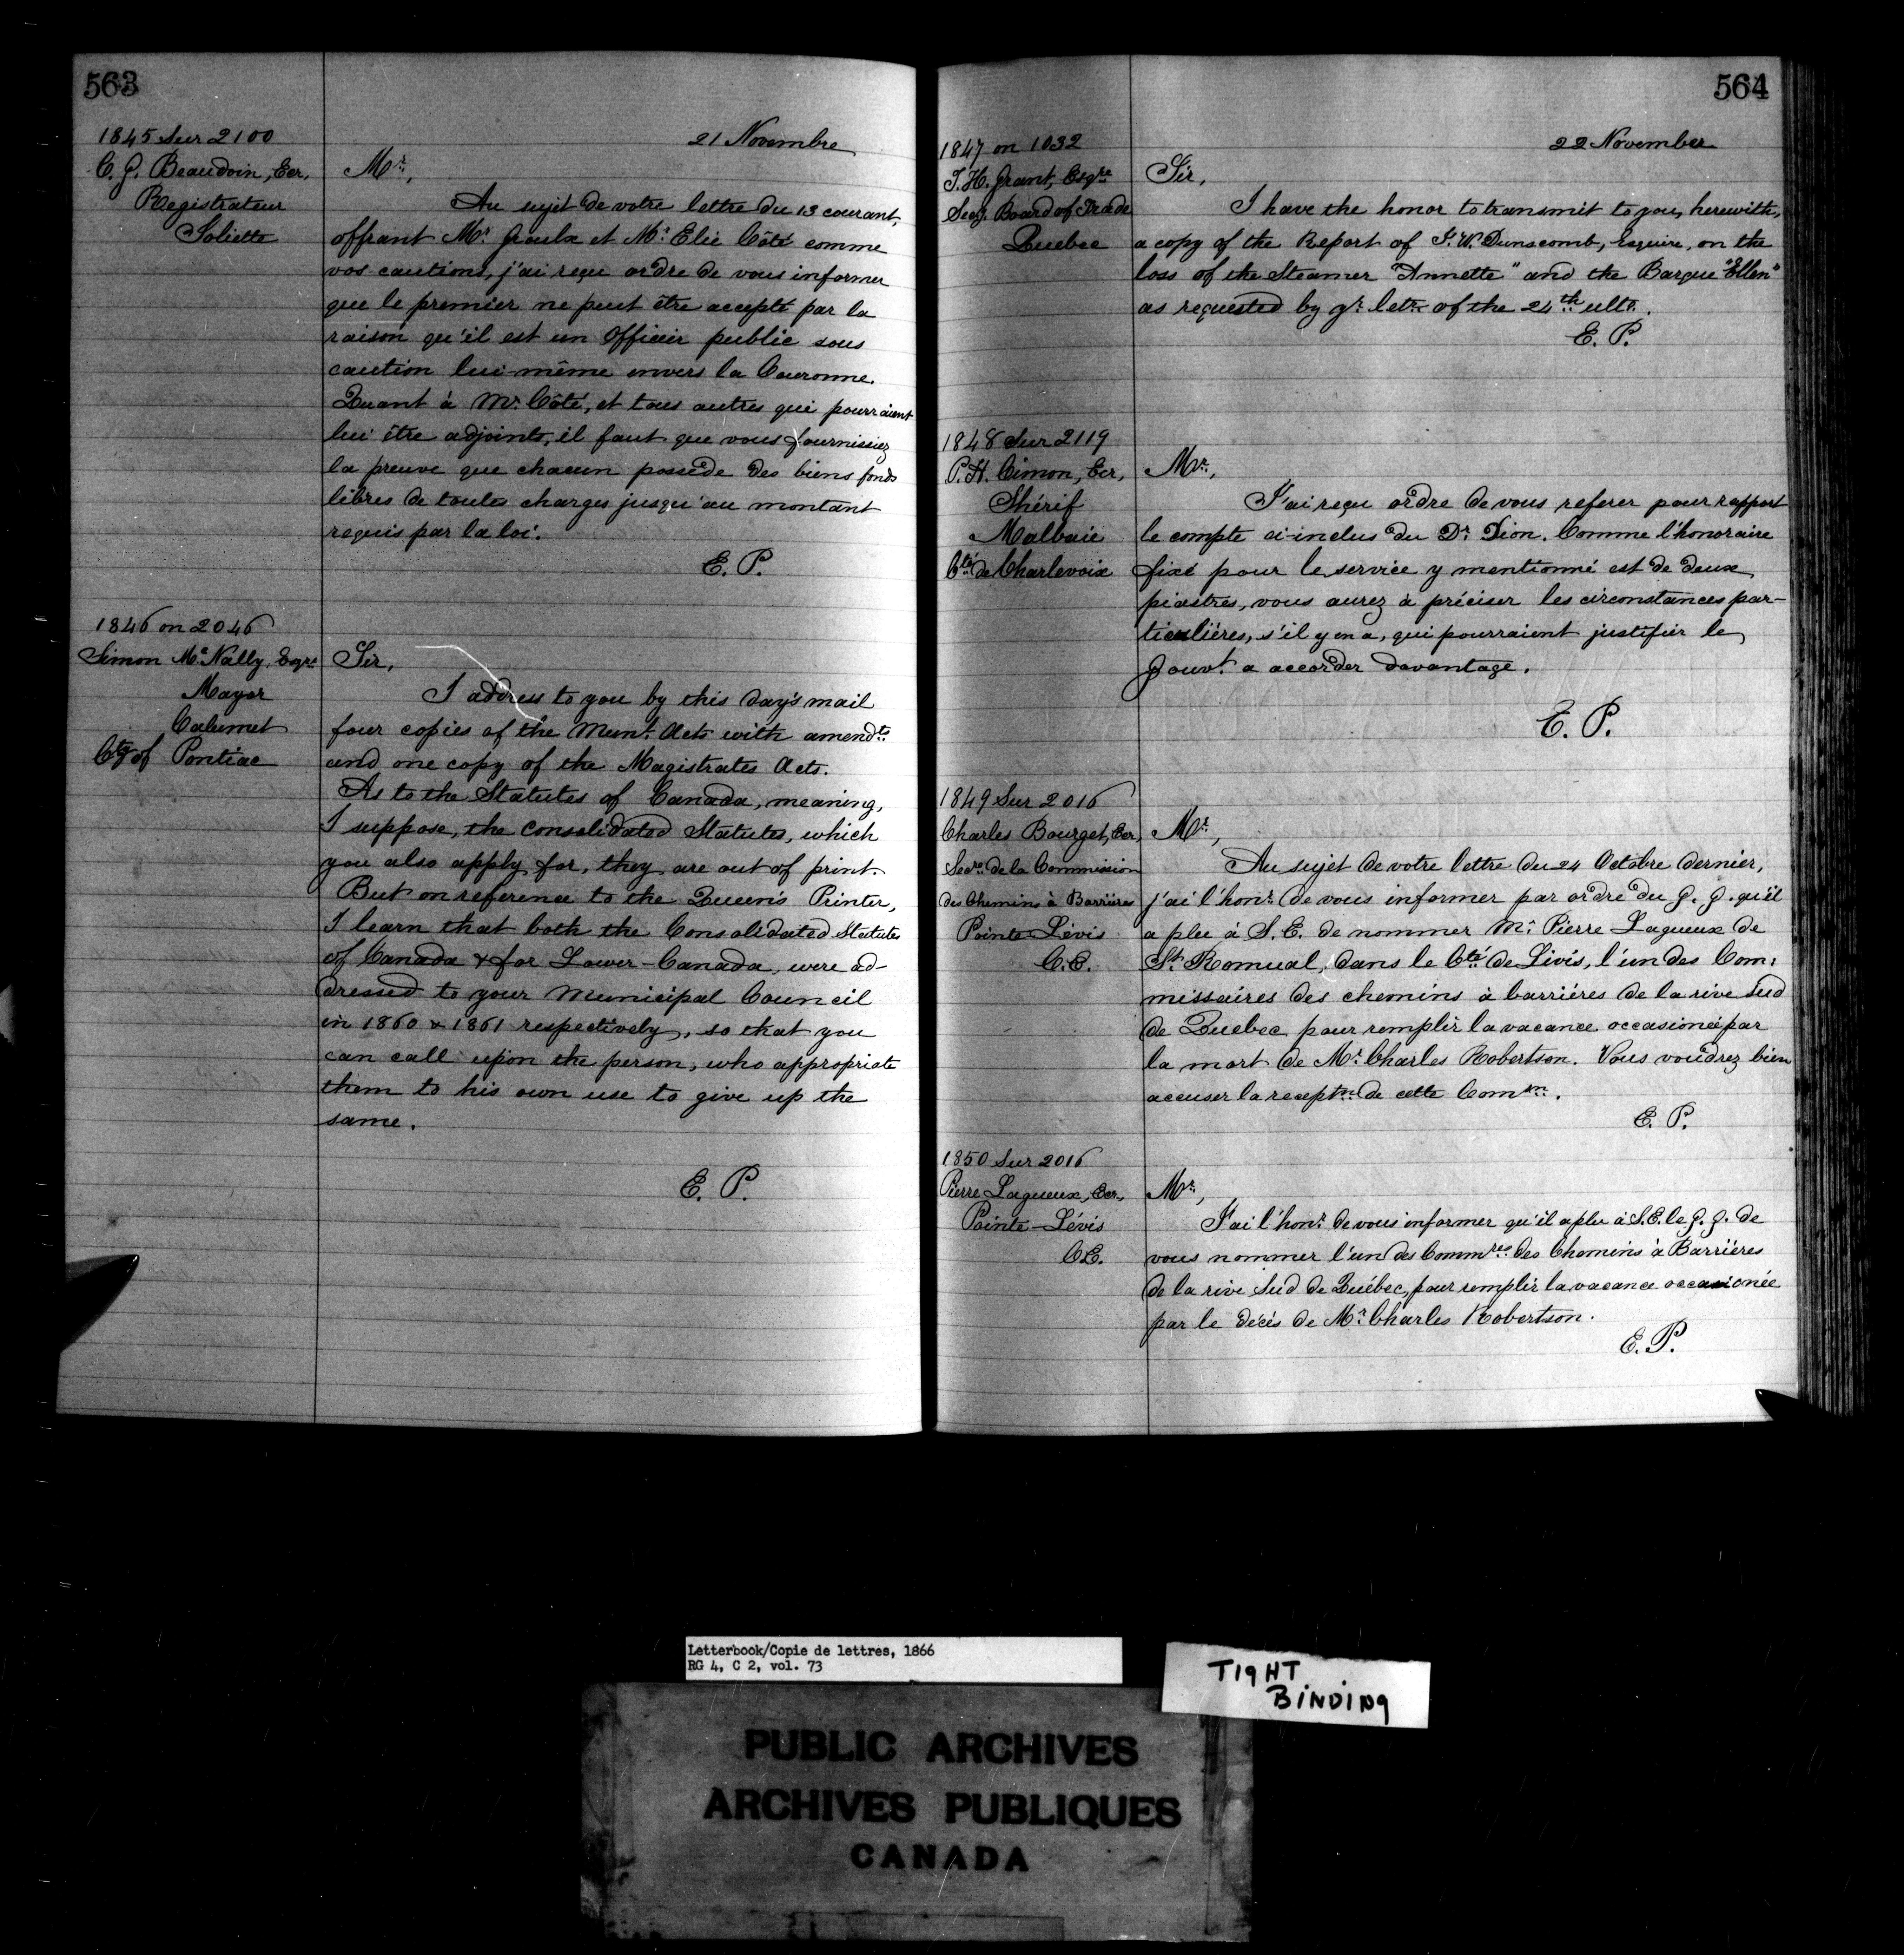 563
1845 Sur 2100
C. G. Beaudoin, Ecr,
Registrateur
Joliette
21 Novembre
Mr,
Au sujet de votre lettre du 13 courant,
offrant Mr Groulx et Mr Elie Côté comme
vos cautions, j'ai reçu ordre de vous informer
que le premier ne peut être accepté par la
raison qu'il est un Officier public sous
caution lui-même envers la Couronne.
Quant à Mr Côté, et tous autres qui pourraient
lui être adjoints, il faut que vous fournissiez
la preuve que chacun possède des biens fonds
libres de toutes charges jusqu'au montant
requis par la loi.
E. P.
1846 on 2046
Simon McNally, Esqre
Mayor
Calumet
Cty of Pontiac
Sir,
I address to you by this day's mail
four copies of the Munl Acts with amendts
and one copy of the Magistrates Acts.
As to the Statutes of Canada, meaning,
I suppose, the consolidated Statutes, which
you also apply for, they are out of print.
But on reference to the Queen's Printer,
I learn that both the Consolidated Statutes
of Canada & for Lower-Canada, were ad-
dressed to your Municipal Council
in 1860 & 1861 respectively, so that you
can call upon the person, who appropriate
them to his own use to give up the
same.
E. P.
564
1847 on 1032
T. H. Grant, Esqre
Secy. Board of Trade
Quebec
22 November
Sir,
I have the honor to transmit to you, herewith,
a copy of the Report of J. W. Dunscomb, Esquire, on the
loss of the Steamer "Annette" and the Barque "Ellen"
as requested by yr letr of the 24th ulto.
E. P.
1848 Sur 2119
P. H. Cimon, Ecr,
Shérif
Malbaie
Cté de Charlevoix
Mr,
J'ai reçu ordre de vous referer pour rapport
le compte ci-inclus du Dr Dion. Comme l'honoraire
fixé pour le service y mentionné est de deux
piastres, vous aurez à préciser les circonstances par-
ticulières, s'il y en a, qui pourraient justifier le
Gouvt a accorder davantage.
E. P.
1849 Sur 2016
Charles Bourget, Ecr,
Secre de la Commission
des Chemins à Barrières
Pointe Lévis
C.E.
Mr,
Au sujet de votre lettre du 24 Octobre dernier,
j'ai l'honr de vous informer par ordre du G. G. qu'il
a plu à S. E. de nommer Mr Pierre Lagueux de
St Romual, dans le Cté de Lévis, l'un des Com-
missaires des chemins à barrières de la rive Sud
de Quebec pour remplir la vacance occasionée par
la mort de Mr Charles Robertson. Vous voudrez bien
accuser la receptn de cette Comon.
E. P.
1850 Sur 2016
Pierre Lagueux, Ecr,
Pointe-Lévis
C.E.
Mr,
J'ai l'honr de vous informer qu'il a plu à S. E. le G. G. de
vous nommer l'un des Commres des Chemins à Barrières
de la rive Sud de Québec, pour remplir la vacance occasionée
par le décès de Mr Charles Robertson.
E. P.
Letterbook/Copie de lettres, 1866
RG 4, C 2, vol. 73
TIGHT
BINDING
PUBLIC ARCHIVES
ARCHIVES PUBLIQUES
CANADA